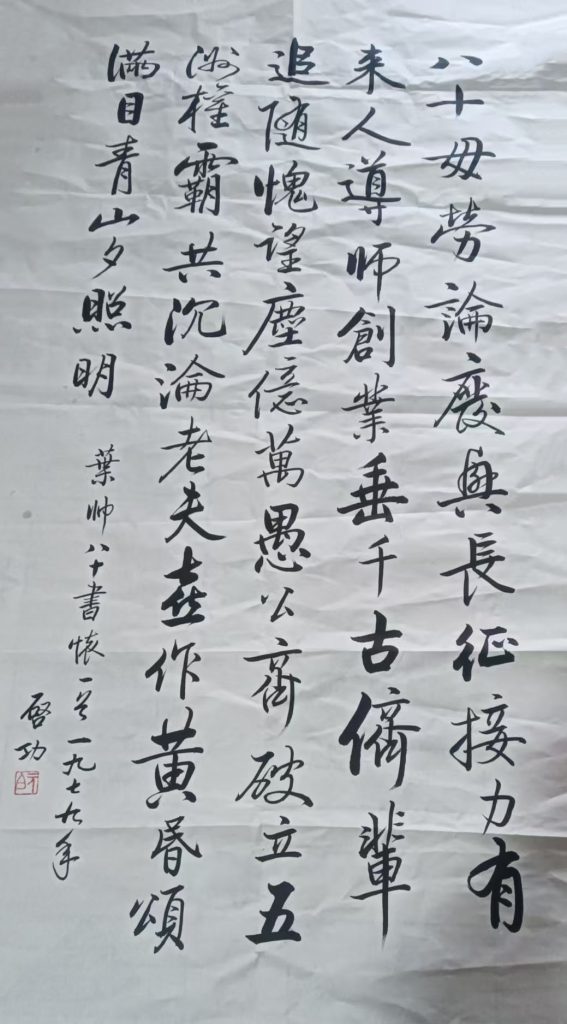 八十毋勞論廢興長征接力有
来人導師創業垂千古儕輩
追隨愧望塵億萬愚公齊破立五
洲權霸共沉淪老夫喜作黄昏頌
滿目青山夕照明
葉帥八十書懷一首一九七九年
啓功